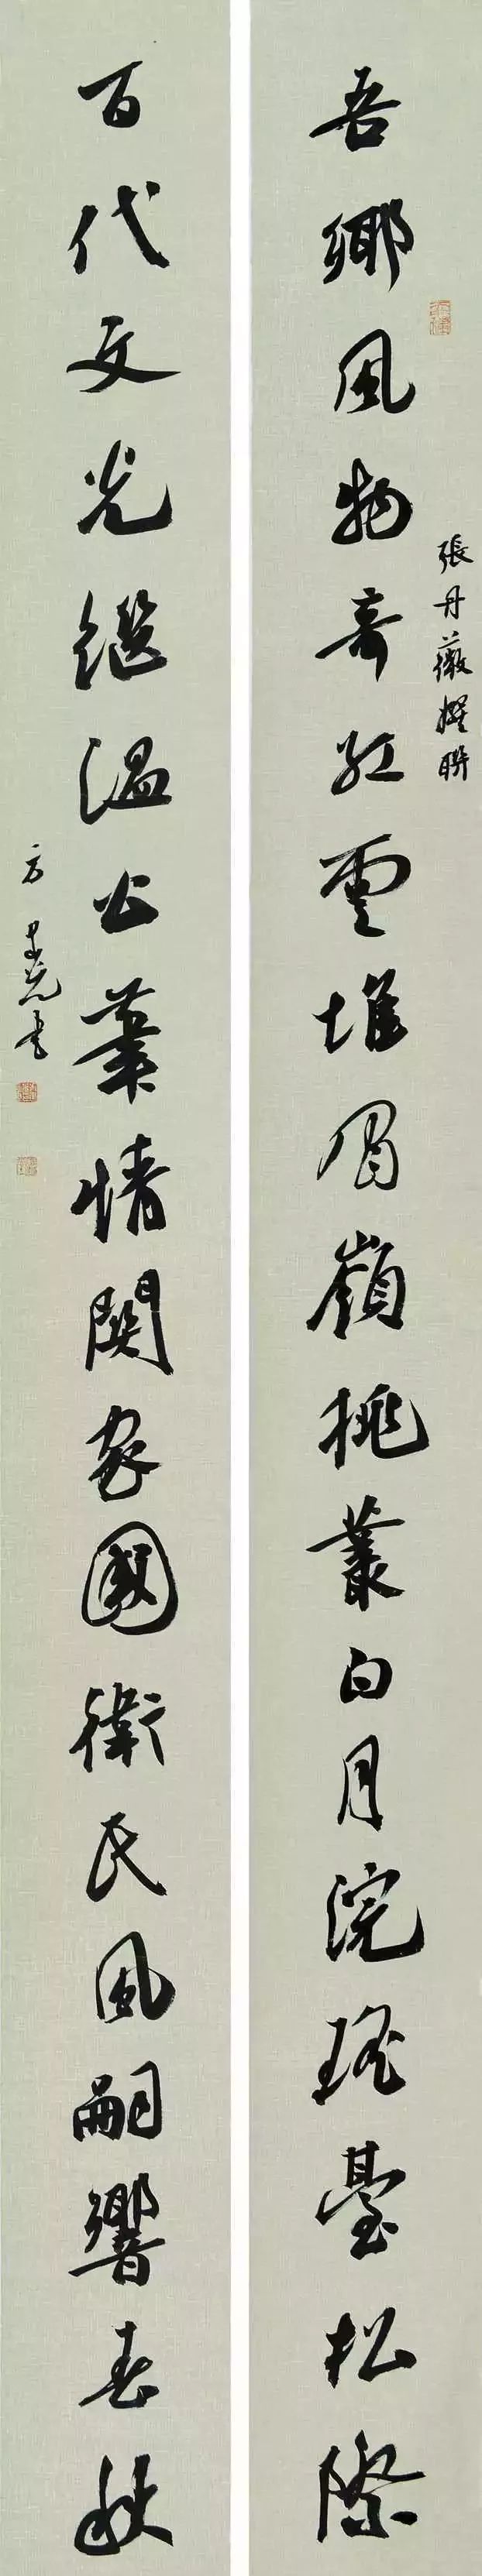 吾鄉風物奇紅雲堆眉嶺桃叢白月浣瑤臺松際
張丹薇撰聯
百代文光繼溫公業情關家國衛民風嗣響春秋
方 書